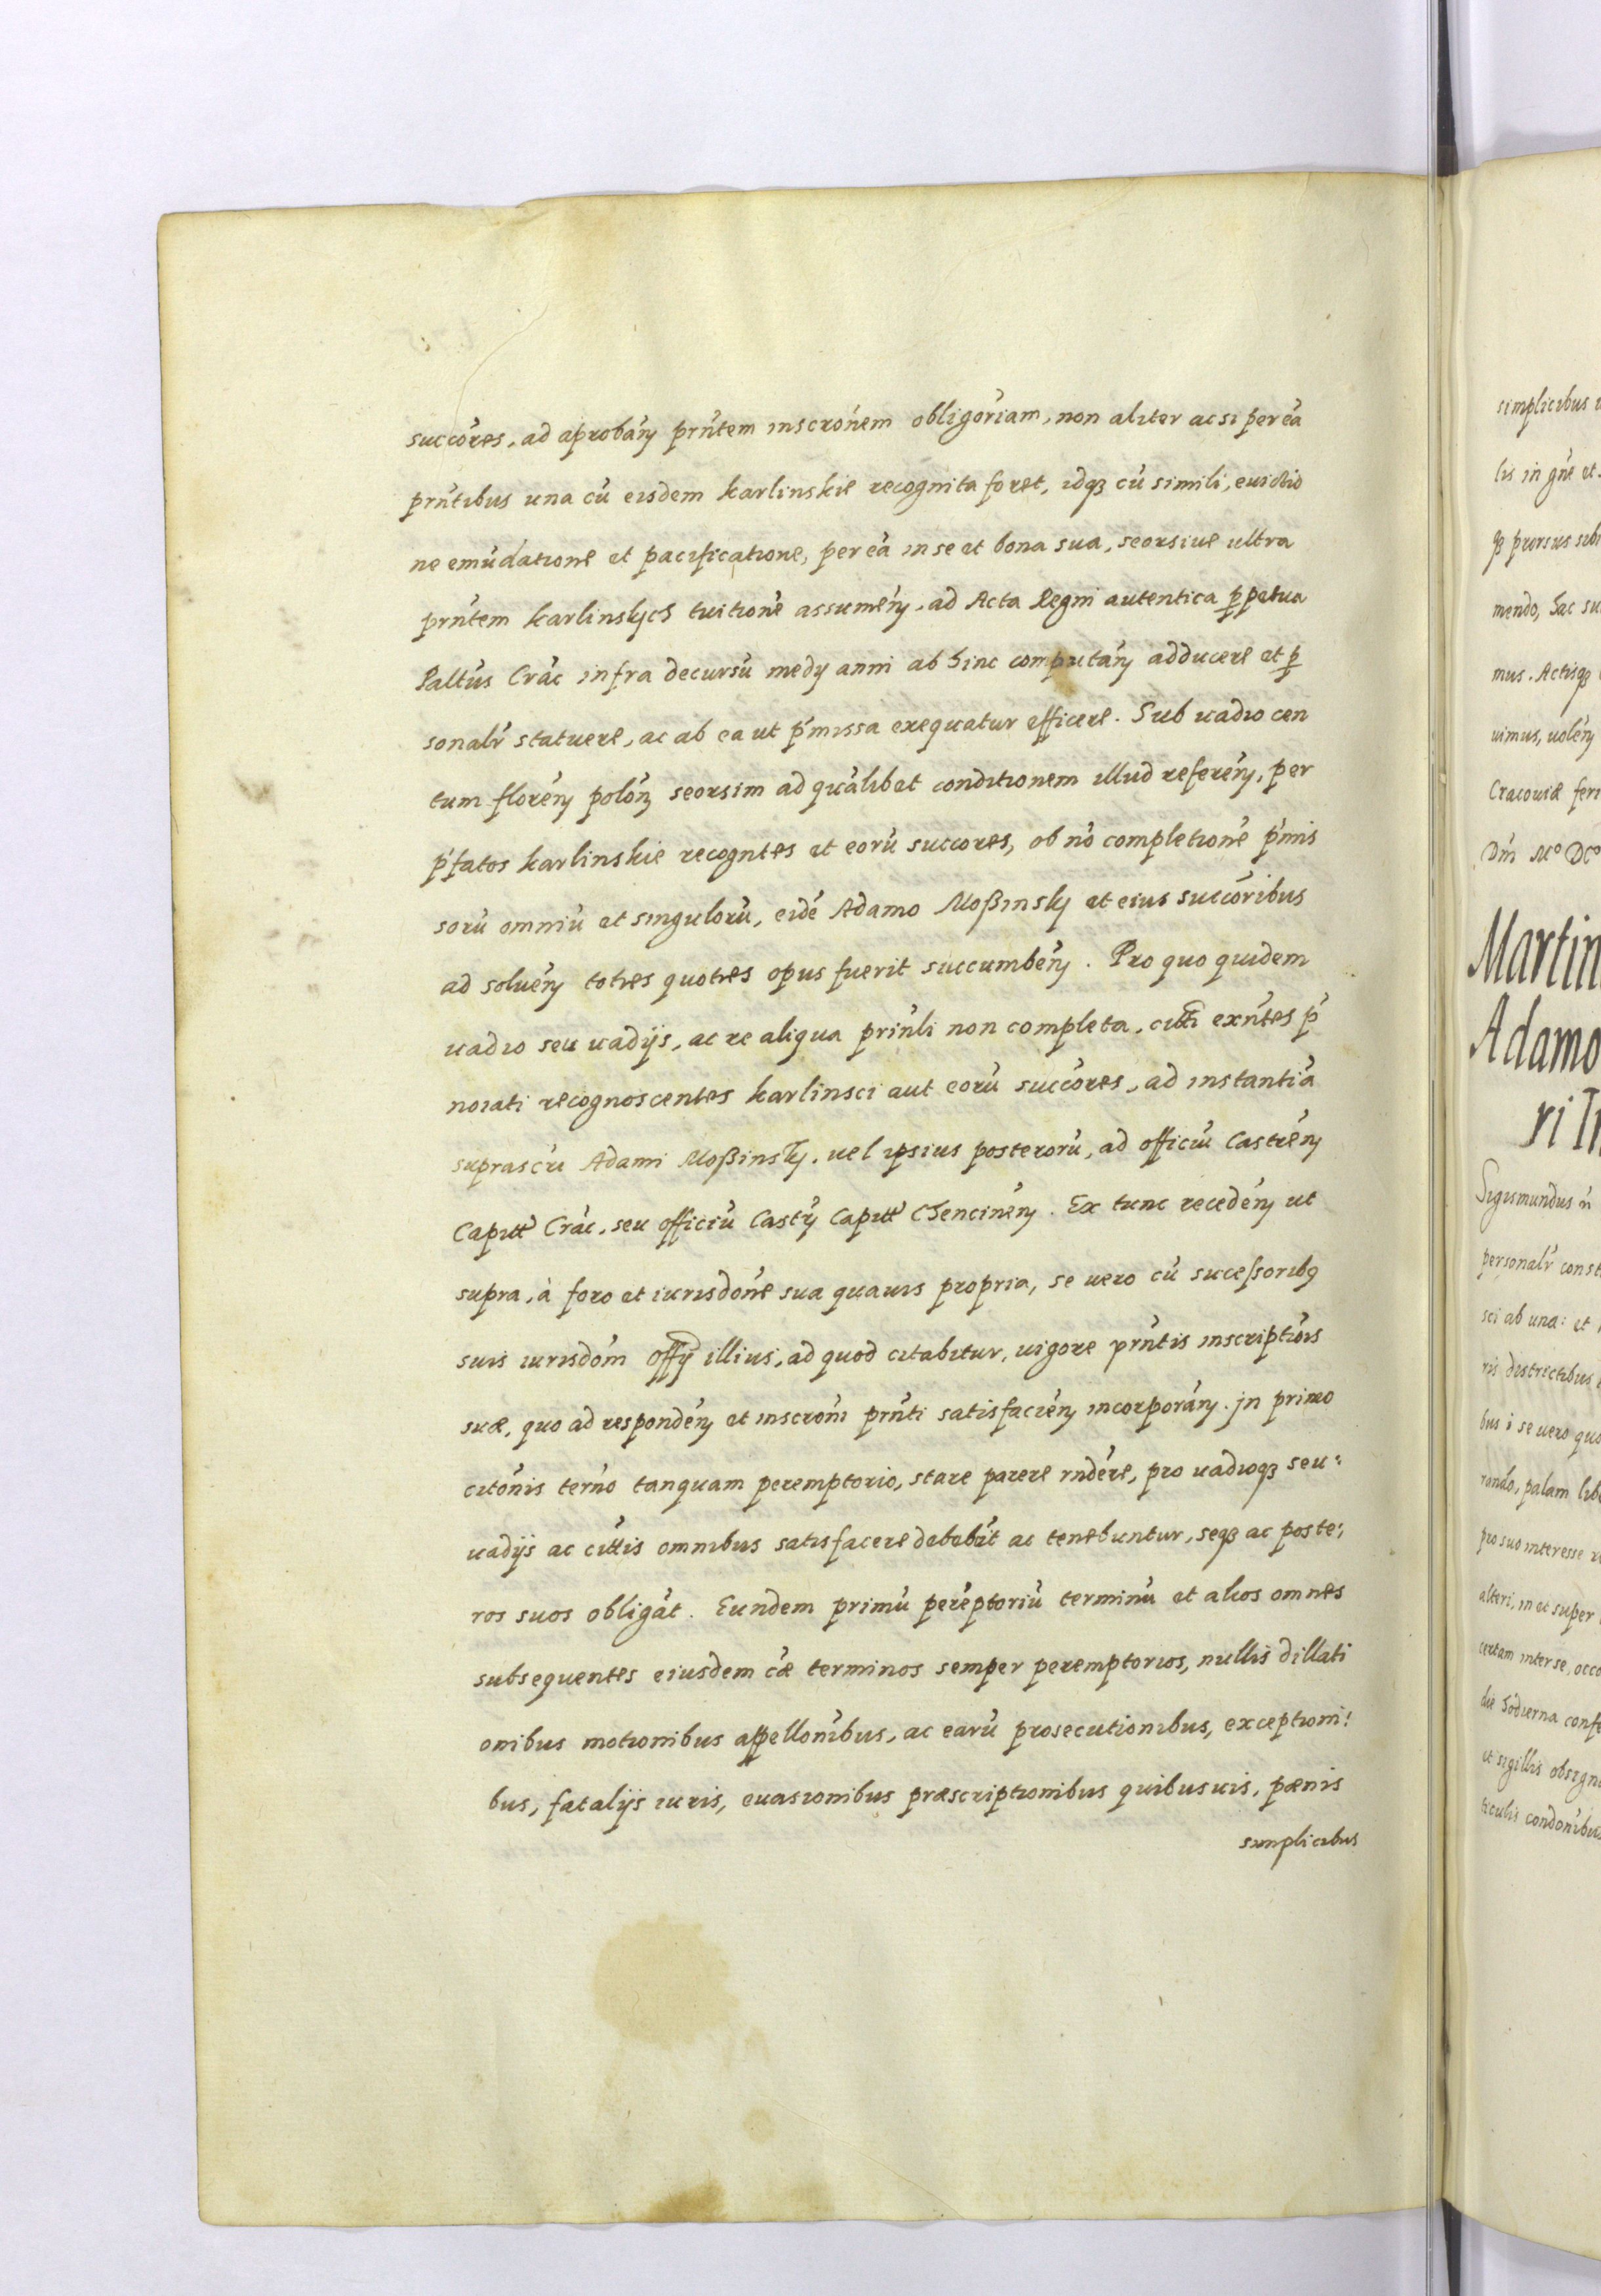 succores, ad aprobañ prñtem inscronem obligoriam, non aliter acsi per eã
prñtibus una cũ eisdem Karlinskie recognita foret, idq3 cũ simili, euictio
ne emũdatione et pacificatione, per eã in se et bona sua, seorsiue ultra
prñtem Karlinskych tuitionẽ assumeñ, ad Acta Regni autentica ꝑpetua
Paltus Crac infra decursũ medy anni ab hinc computañ adducere et ꝑ
sonalr̃ statuere, ac ab ea ut p̃missa exequatur efficere. Sub uadio cen
tum floreñ polon seorsim ad quãlibet conditionem illud refereñ, per
p̃fatos Karlinskie recogntes et eorũ succores, ob nõ completionẽ p̃mis
sorũ omniũ et singulorũ, eidẽ Adamo Moßinsky et eius succoribus
ad solueñ toties quoties opus fuerit succumbeñ. Pro quo quidem
uadio seu uadijs, ac re aliqua prñli non completa, citti exñtes p̃
noiati recognoscentes Karlinsci aut eorũ succores, ad instantiã
suprascri Adami Moßinsky, uel ipsius posterorũ, ad officiũ Castreñ
Capitt Crac, seu officiũ Castr̃ Capitt Chencineñ. Ex tunc recedeñ ut
supra, à foro et iurisdone sua quauis propria, se uero cũ sucessoribꝯ
suis iurisdom offy illius, ad quod citabitur, uigore prñtis inscriptiois
suæ, quo ad respondeñ et inscroni prñti satisfacieñ incorporañ. In primo
citonis termo tanquam peremptorio, stare parere rndere, pro uadioq3 seu:
uadijs ac cittis omnibus satisfacere debebũt ac tenebuntur, seq3 ac poste:
ros suos obligãt. Eundem primũ perẽptoriũ terminũ et alios omnes
subsequentes eiusdem cæ terminos semper peremptorios, nullis dillati
onibus motionibus appellonibus, ac earũ prosecutionibus, exceptioni:
bus, fatalijs iuris, euasionibus præscriptionibus quibusuis, pænis
simplicibus
simplicibus
lis in gñe et
q3 prorsus sibi
mendo, hac su
mus. Actisq3
uimus, uoleñ
Cracouiæ feri
Dni Mº DCº
Martin
Adamo
ri In
Sigismundus
personalr̃ const
sci ab una: et
ris districtibus
bus i se uero quo
rando, palam lib
pro suo interesse
alteri, in et super
certam inter se, occa
die hodierna confe
et sigillis obsign
ticulis condonibus